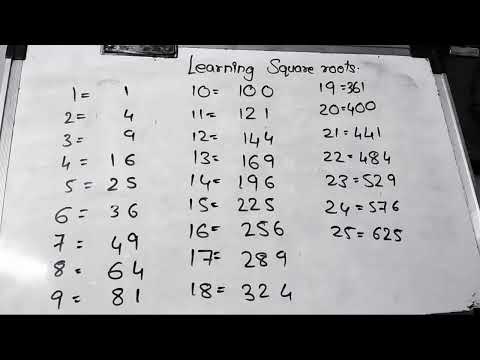 Learning Square roots.
1= 1
2= 4
3= 9
4= 16
5= 25
6= 36
7= 49
8= 64
9= 81
10= 100
11= 121
12= 144
13= 169
14= 196
15= 225
16= 256
17= 289
18= 324
19=361
20=400
21=441
22=484
23=529
24=576
25=625